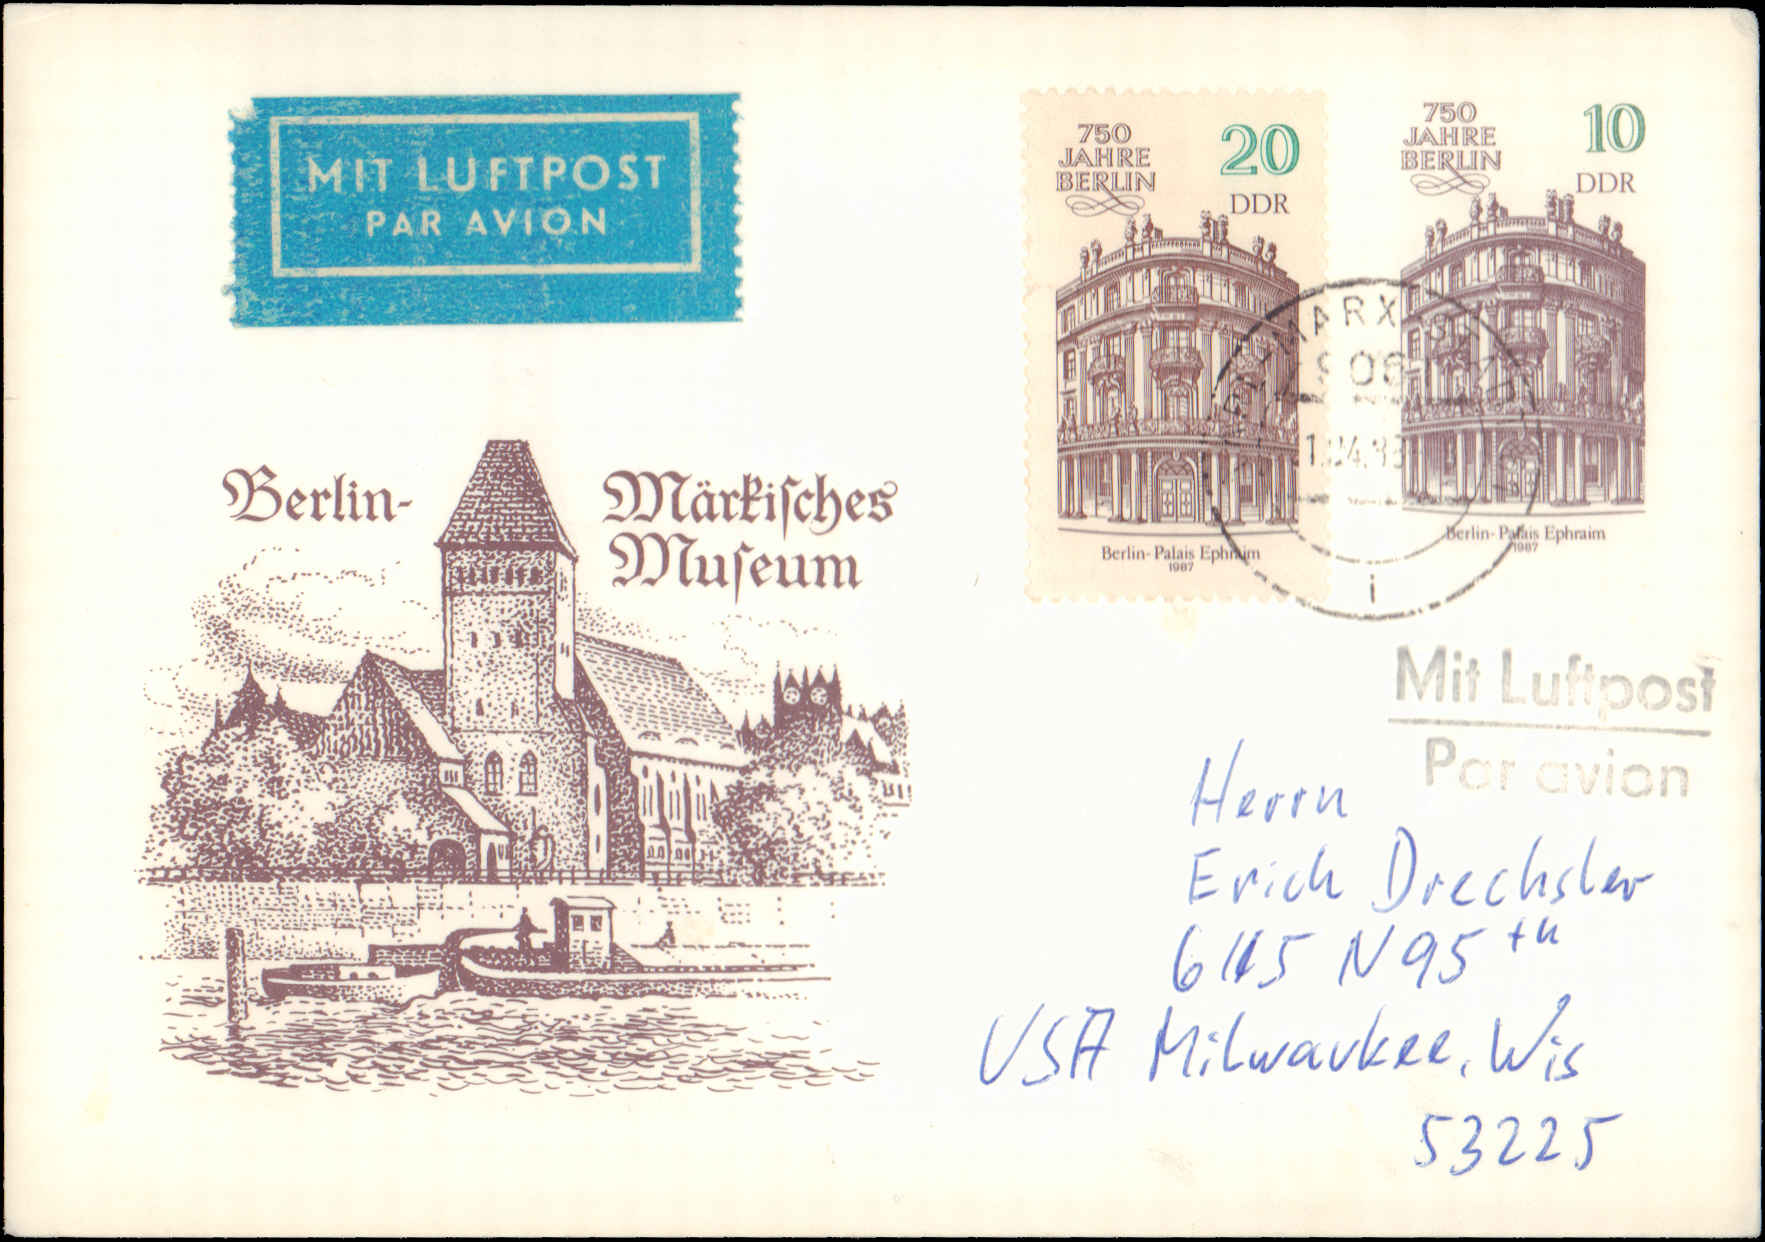 MIT LUFTPOST
PAR AVION
750
JAHRE
BERLIN
20
DDR
Berlin-Palais Ephraim
1987
750
JAHRE
BERLIN
10
DDR
Berlin-Palais Ephraim
1987
MARX
i
Berlin- Märkisches
Museum
Mit Luftpost
Par avion
Herrn
Erich Drechsler
N 95th
USA Milwaukee, Wis
53225